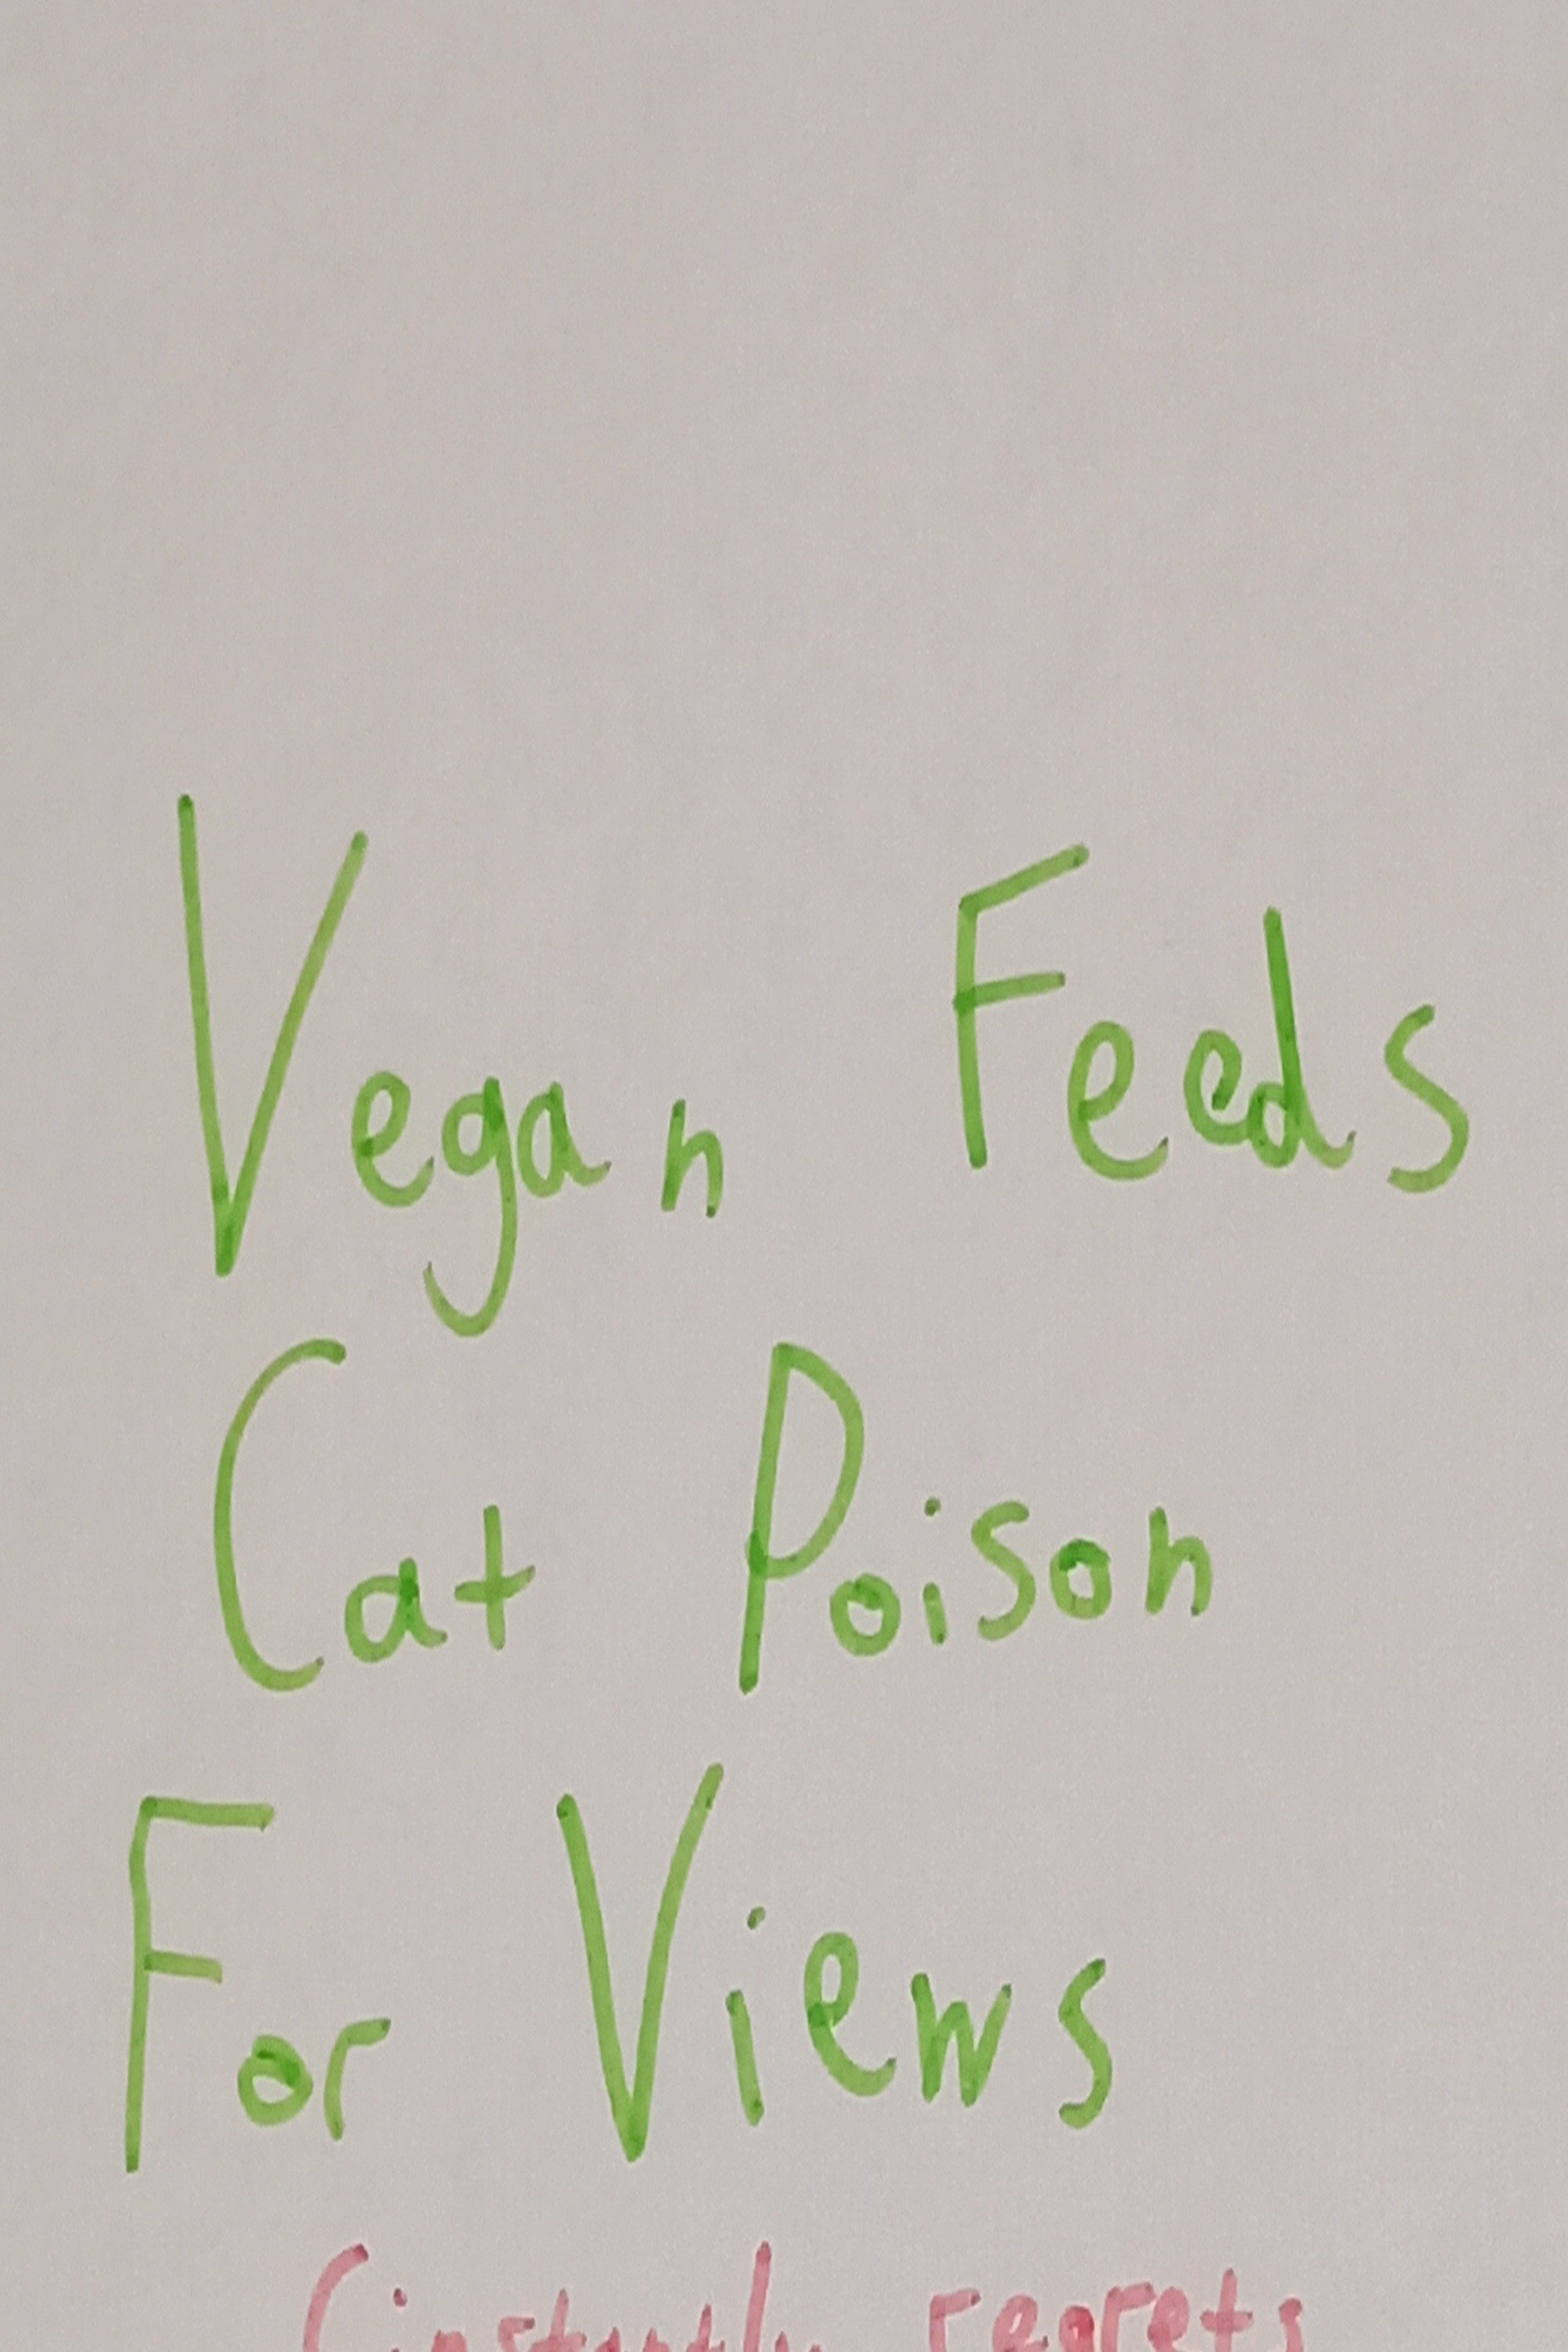 Vegan Feeds
Cat Poison
For Views
(instantly regrets